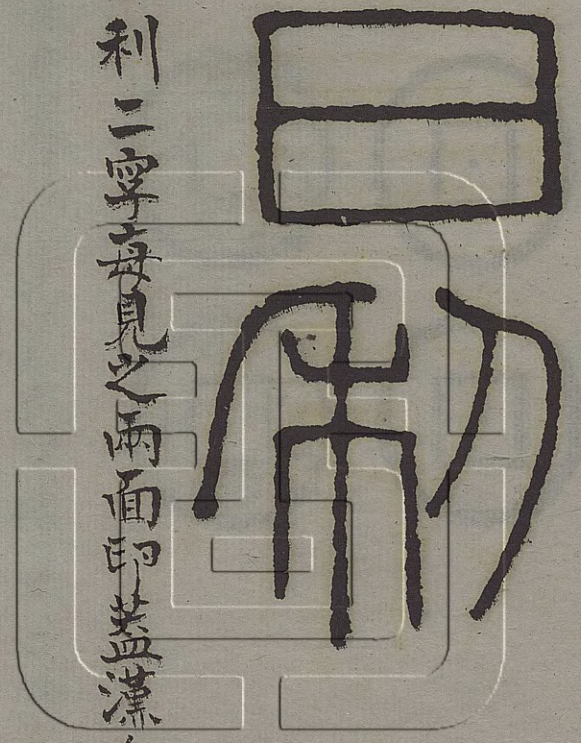 日利
利二字每見之兩面印蓋漢